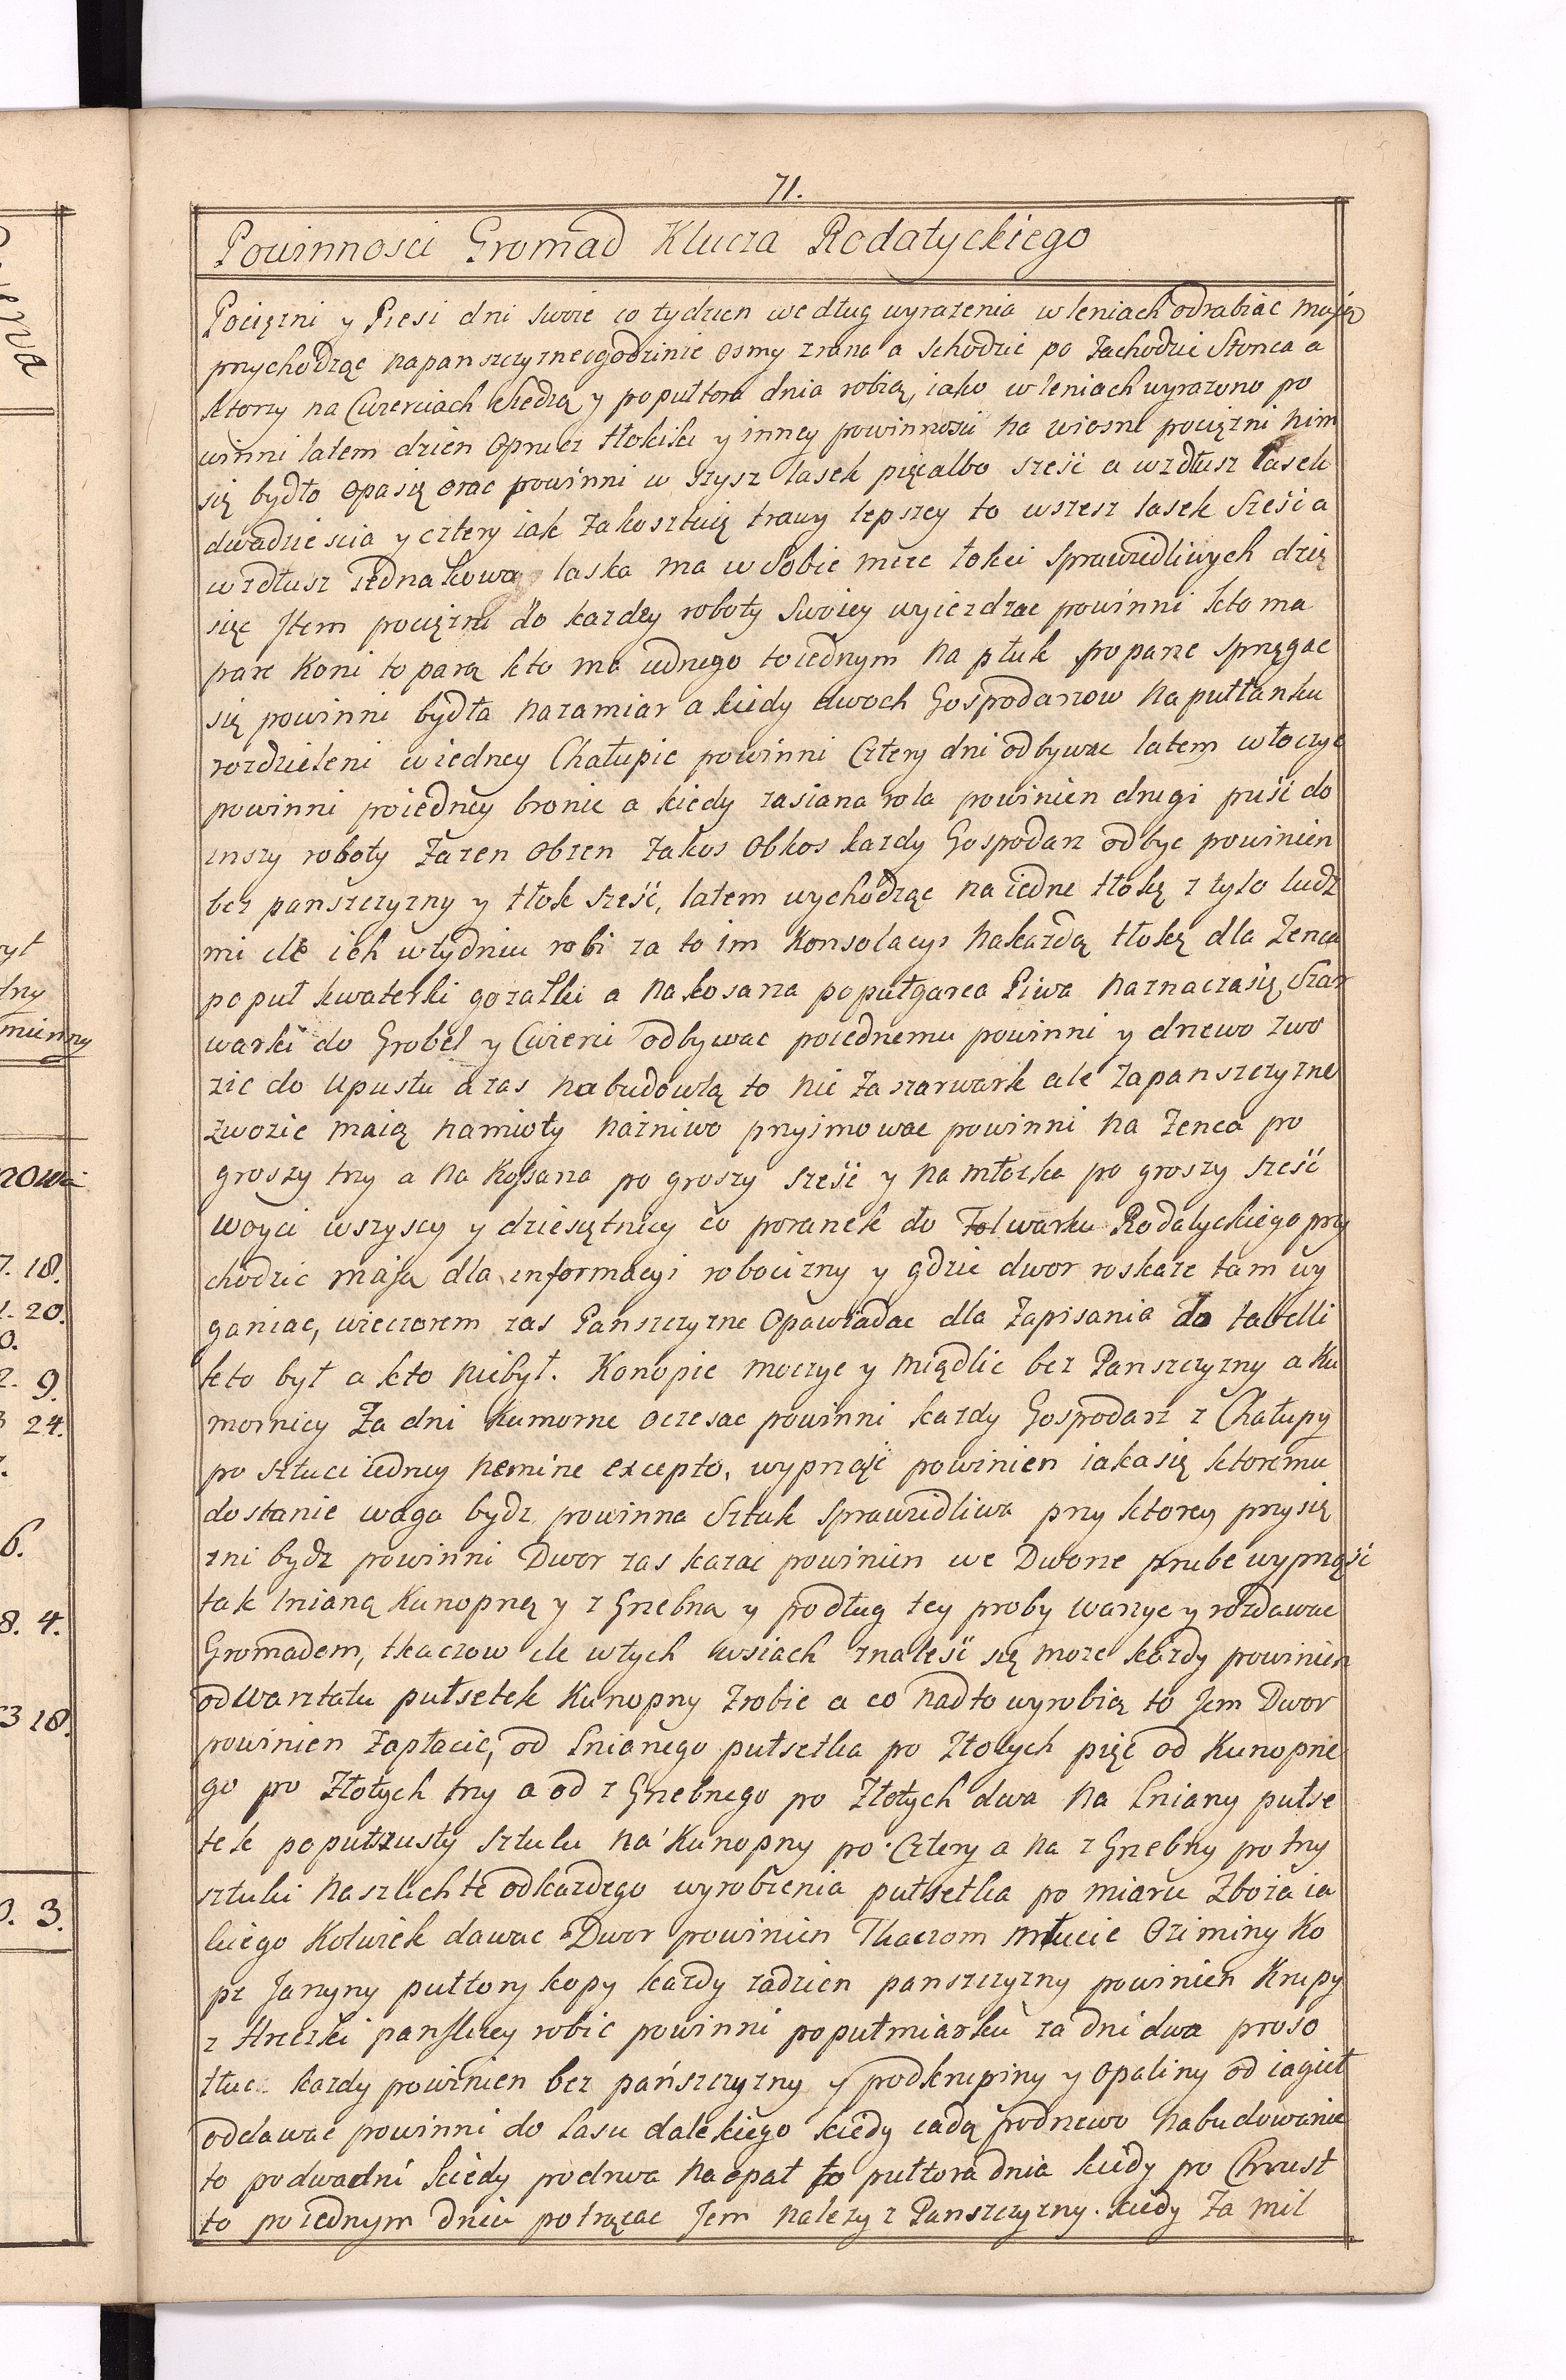 71.
Powinnosci Gromad Klucza Rodatyckiego
Pociężni y Piesi dni swoie co tydzien według wyrażenia w leniach odrabiac mają
przychodząc na panszczyzne o godzinie osmy z rana a schodzic po zachodzie Słonca a
ktorzy na Cwierciach siedzą y po pułtora dnia robią, iako w leniach wyrazono po
winni latem dzien oprucz tłokiki y inney powinnosci na wiosne pociężni nim
się bydło opasię orac powinni w szysz lasek pięc albo sześć a wzdłusz lasek
dwadziescia y cztery iak zakosztuią trawy lepszey to wszesz lasek sześć a
wzdłusz iednakowo laska ma w sobie miec łokci sprawiedliwych dzię
sięc Item pociężni do kazdey roboty swoiey wyiezdzac powinni kto ma
pare koni to parą kto ma iednego to iednym na płuk po parze sprzęgac
się powinni bydła na zamiar a kiedy dwoch Gospodarzow na pułłanku
rozdzieleni w iedney Chałupie powinni Cztery dni odbywac latem włoczyc
powinni po iedney bronie a kiedy zasiana rola powinien drugi puść do
inszy roboty Zażen obżen zakos obkos kazdy Gospodarz odbyc powinien
bez panszczyzny y tłok sześć, latem wychodząc na iedne tłokę z tylo ludz
mi ile ich w tydniu robi za to im Konsolacyi na kazdą tłokę dla Zenca
po puł kwaterki gorzałki a na kosarza po pułgarca Piwa naznacza się, Szar
warki do Grobel y Cwierci odbywac po iednemu powinni y drzewo zwo
zic do upustu a zas na budowlą to nie za szarwark ale za panszczyzne
zwozic maią namioty na żniwo przyimowac powinni na Zenca po
groszy trzy a na Kossarza po groszy sześć y na młocka po groszy sześć
Woyci wszyscy y dziesiętnicy co poranek do Folwarku Rodatyckiego przy
chodzic mają dla informacyi robocizny y gdzie dwor roskaze tam wy
ganiac, wieczorem zas Panszczyzne opawiadac dla zapisania do tabelli
kto był a kto niebył. Konopie moczyc y międlic bez Panszczyzny a Ku
mornicy za dni kumorne oczesac powinni kazdy Gospodarz z Chałupy
po sztuce iedney nemine excepto, wyprząść powinien iaka się ktoremu
dostanie waga bydz powinna Sztuk sprawiedliwa przy ktorey przysię
zni bydz powinni Dwor zas kazac powinien we Dworze prube wyprząść
tak lnianą kunopną y z Grzebna y podług tey proby warzyc y rozdawac
Gromadem, tkaczow ile w tych wsiach znaleść się moze kazdy powinien
od Warztatu pułsetek Kunopny zrobic a co nad to wyrobią to Jem Dwor
powinien zapłacic, od Lnianego pułsetka po Złotych pięc od Kunopne
go po Złotych trzy a od z Grzebnego po Złotych dwa na Lniany pułse
tek po pułzusty sztuku na Kunopny po Cztery a na z Grzebny po trzy
sztuki na szlichte od kazdego wyrobienia pułsetka po miaru zboza ia
kiego kolwiek dawac Dwor powinien Tkaczom młucic Oziminy Ko
pe Jarzyny pułtory kopy kazdy za dzien panszczyzny powinien Krupy
z Hreczki panskiey robic powinni po pułmiarku za dni dwa proso
tłuc kazdy powinien bez pańszczyzny y podkrupiny y opaliny od iagieł
oddawac powinni do lasu dalekiego kiedy iadą po drzewo na budowanie
to po dwa dni kiedy po drwa na opał to pułtora dnia kiedy po Chrust
to po iednym dniu potrącac Jem nalezy z Panszczyzny. kiedy za mil